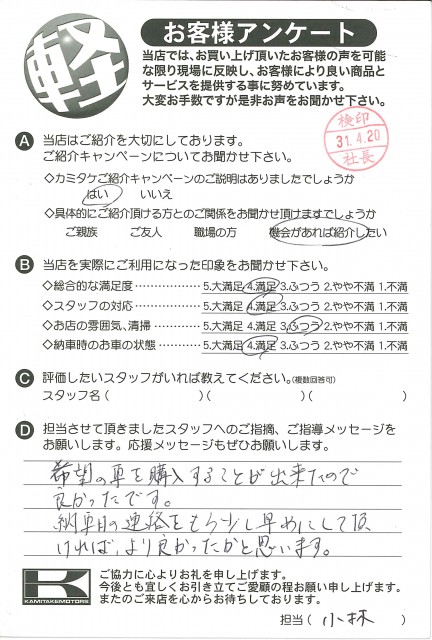 軽
お客様アンケート
当店では、お買い上げ頂いたお客様の声を可能
な限り現場に反映し、お客様により良い商品と
サービスを提供する事に努めています。
大変お手数ですが是非お声をお聞かせ下さい。
検印
31.4.20
社長
A 当店はご紹介を大切にしております。
ご紹介キャンペーンについてお聞かせ下さい。
◇カミタケご紹介キャンペーンのご説明はありましたでしょうか
はい いいえ
◇具体的にご紹介頂ける方とのご関係をお聞かせ頂けますでしょうか
ご親族 ご友人 職場の方 機会があれば紹介したい
B 当店を実際にご利用になった印象をお聞かせ下さい。
◇総合的な満足度 ……………… 5.大満足 4.満足 3.ふつう 2.やや不満 1.不満
◇スタッフの対応 ……………… 5.大満足 4.満足 3.ふつう 2.やや不満 1.不満
◇お店の雰囲気、清掃 ………… 5.大満足 4.満足 3.ふつう 2.やや不満 1.不満
◇納車時のお車の状態 ………… 5.大満足 4.満足 3.ふつう 2.やや不満 1.不満
C 評価したいスタッフがいれば教えてください。(複数回答可)
スタッフ名( )( )( )
D 担当させて頂きましたスタッフへのご指摘、ご指導メッセージを
お願いします。応援メッセージもぜひお願いします。
希望の車を購入することが出来たので
良かったです。
納車日の連絡をもう少し早めにして頂
ければ、より良かったかと思います。
K
KAMITAKEMOTORS
ご協力に心よりお礼を申し上げます。
今後とも宜しくお引き立てご愛顧の程お願い申し上げます。
またのご来店を心からお待ちしております。
担当( 小林 )